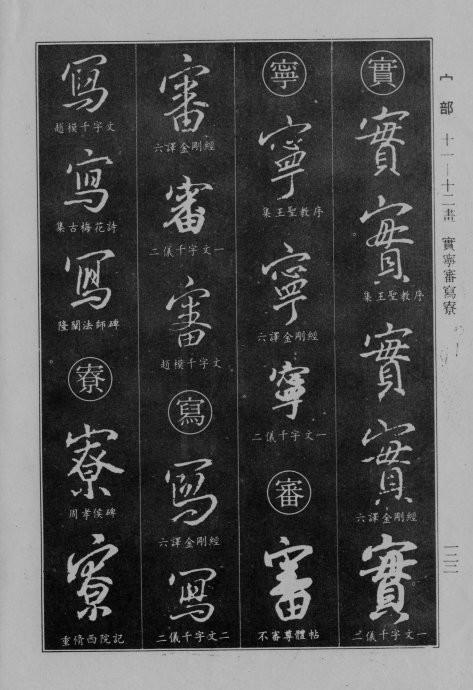 宀部 十一—十二畫 實寧審寫寮
一三一
實
實
實
集王聖教序
實
實
六譯金剛經
實
二儀千字文一
寧
寧
集王聖教序
寧
六譯金剛經
寧
二儀千字文一
審
審
不審尊體帖
審
六譯金剛經
審
二儀千字文一
審
趙模千字文
寫
寫
六譯金剛經
寫
二儀千字文二
寫
趙模千字文
寫
集古梅花詩
寫
隆闡法師碑
寮
寮
周孝侯碑
寮
重脩西院記